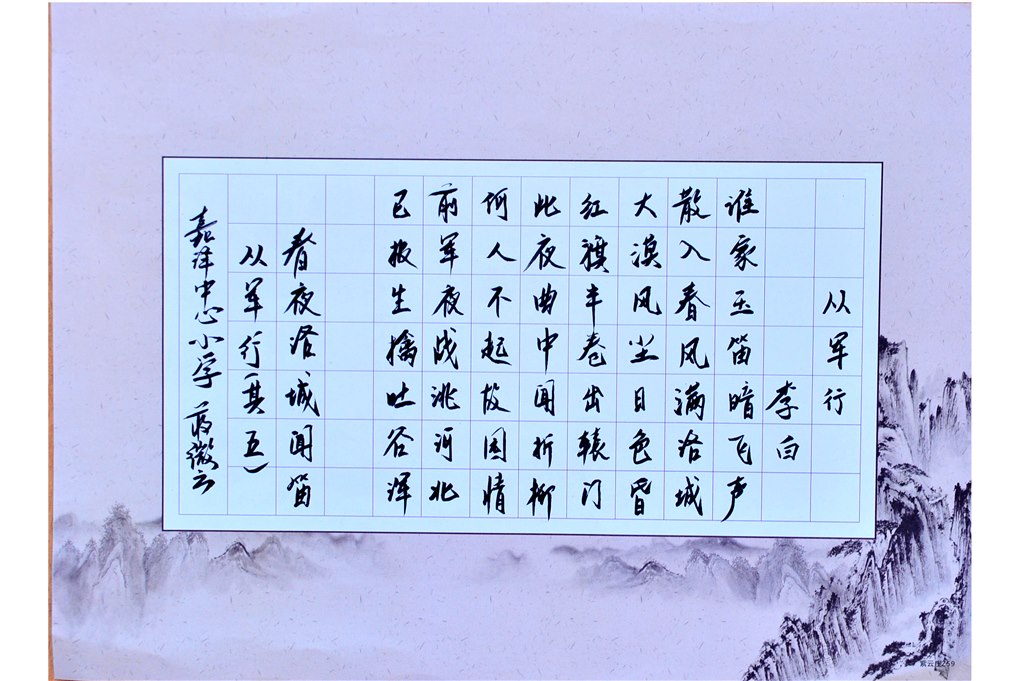 从军行
李白
谁家玉笛暗飞声
散入春风满洛城
大漠风尘日色昏
红旗半卷出辕门
此夜曲中闻折柳
何人不起故园情
前军夜战洮河北
已报生擒吐谷浑
春夜洛城闻笛
从军行(其五)
嘉泽中心小学 蒋微云